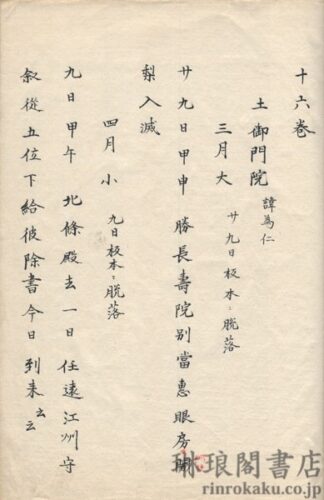 十六巻
土御門院 諱為仁
三月大 廿九日板本ニ脱落
廿九日甲申 勝長寿院別當恵眼房闍
梨入滅
四月小 九日板本ニ脱落
九日甲午 北條殿去一日任遠江州守
叙從五位下給彼除書今日到来云云
琳琅閣書店
rinrokaku.co.jp